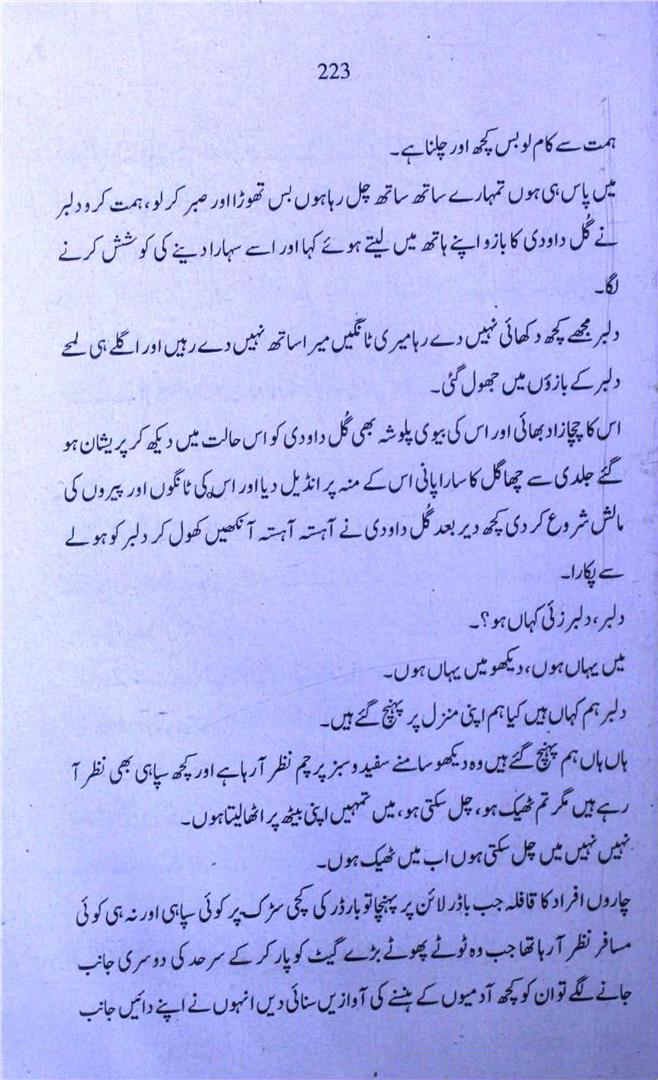 223
ہمت سے کام لو بس کچھ اور چلنا ہے۔
میں پاس ہی ہوں تمہارے ساتھ ساتھ چل رہا ہوں بس تھوڑا اور صبر کر لو، ہمت کرو دلبر
نے گُل داودی کا بازو اپنے ہاتھ میں لیتے ہوئے کہا اور اسے سہارا دینے کی کوشش کرنے
لگا۔
دلبر مجھے کچھ دکھائی نہیں دے رہا میری ٹانگیں میرا ساتھ نہیں دے رہیں اور اگلے ہی لمحے
دلبر کے بازؤں میں جھول گئی۔
اس کا چچازاد بھائی اور اس کی بیوی پلوشہ بھی گُل داودی کو اس حالت میں دیکھ کر پریشان ہو
گئے جلدی سے چھاگل کا سارا پانی اس کے منہ پر انڈیل دیا اور اس کی ٹانگوں اور پیروں کی
مالش شروع کر دی کچھ دیر بعد گُل داودی نے آہستہ آہستہ آنکھیں کھول کر دلبر کو ہولے
سے پکارا۔
دلبر، دلبر زئی کہاں ہو؟۔
میں یہاں ہوں، دیکھو میں یہاں ہوں۔
دلبر ہم کہاں ہیں کیا ہم اپنی منزل پر پہنچ گئے ہیں۔
ہاں ہاں ہم پہنچ گئے ہیں وہ دیکھو سامنے سفید و سبز پرچم نظر آ رہا ہے اور کچھ سپاہی بھی نظر آ
رہے ہیں مگر تم ٹھیک ہو، چل سکتی ہو، میں تمہیں اپنی پیٹھ پر اٹھا لیتا ہوں۔
نہیں نہیں میں چل سکتی ہوں اب میں ٹھیک ہوں۔
چاروں افراد کا قافلہ جب باڈر لائن پر پہنچا تو بارڈر کی کچی سڑک پر کوئی سپاہی اور نہ ہی کوئی
مسافر نظر آ رہا تھا جب وہ ٹوٹے پھوٹے بڑے گیٹ کو پار کر کے سرحد کی دوسری جانب
جانے لگے تو ان کو کچھ آدمیوں کے ہنسنے کی آوازیں سنائی دیں انہوں نے اپنے دائیں جانب